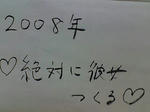 2008年
♡絶対に彼女
つくる♡